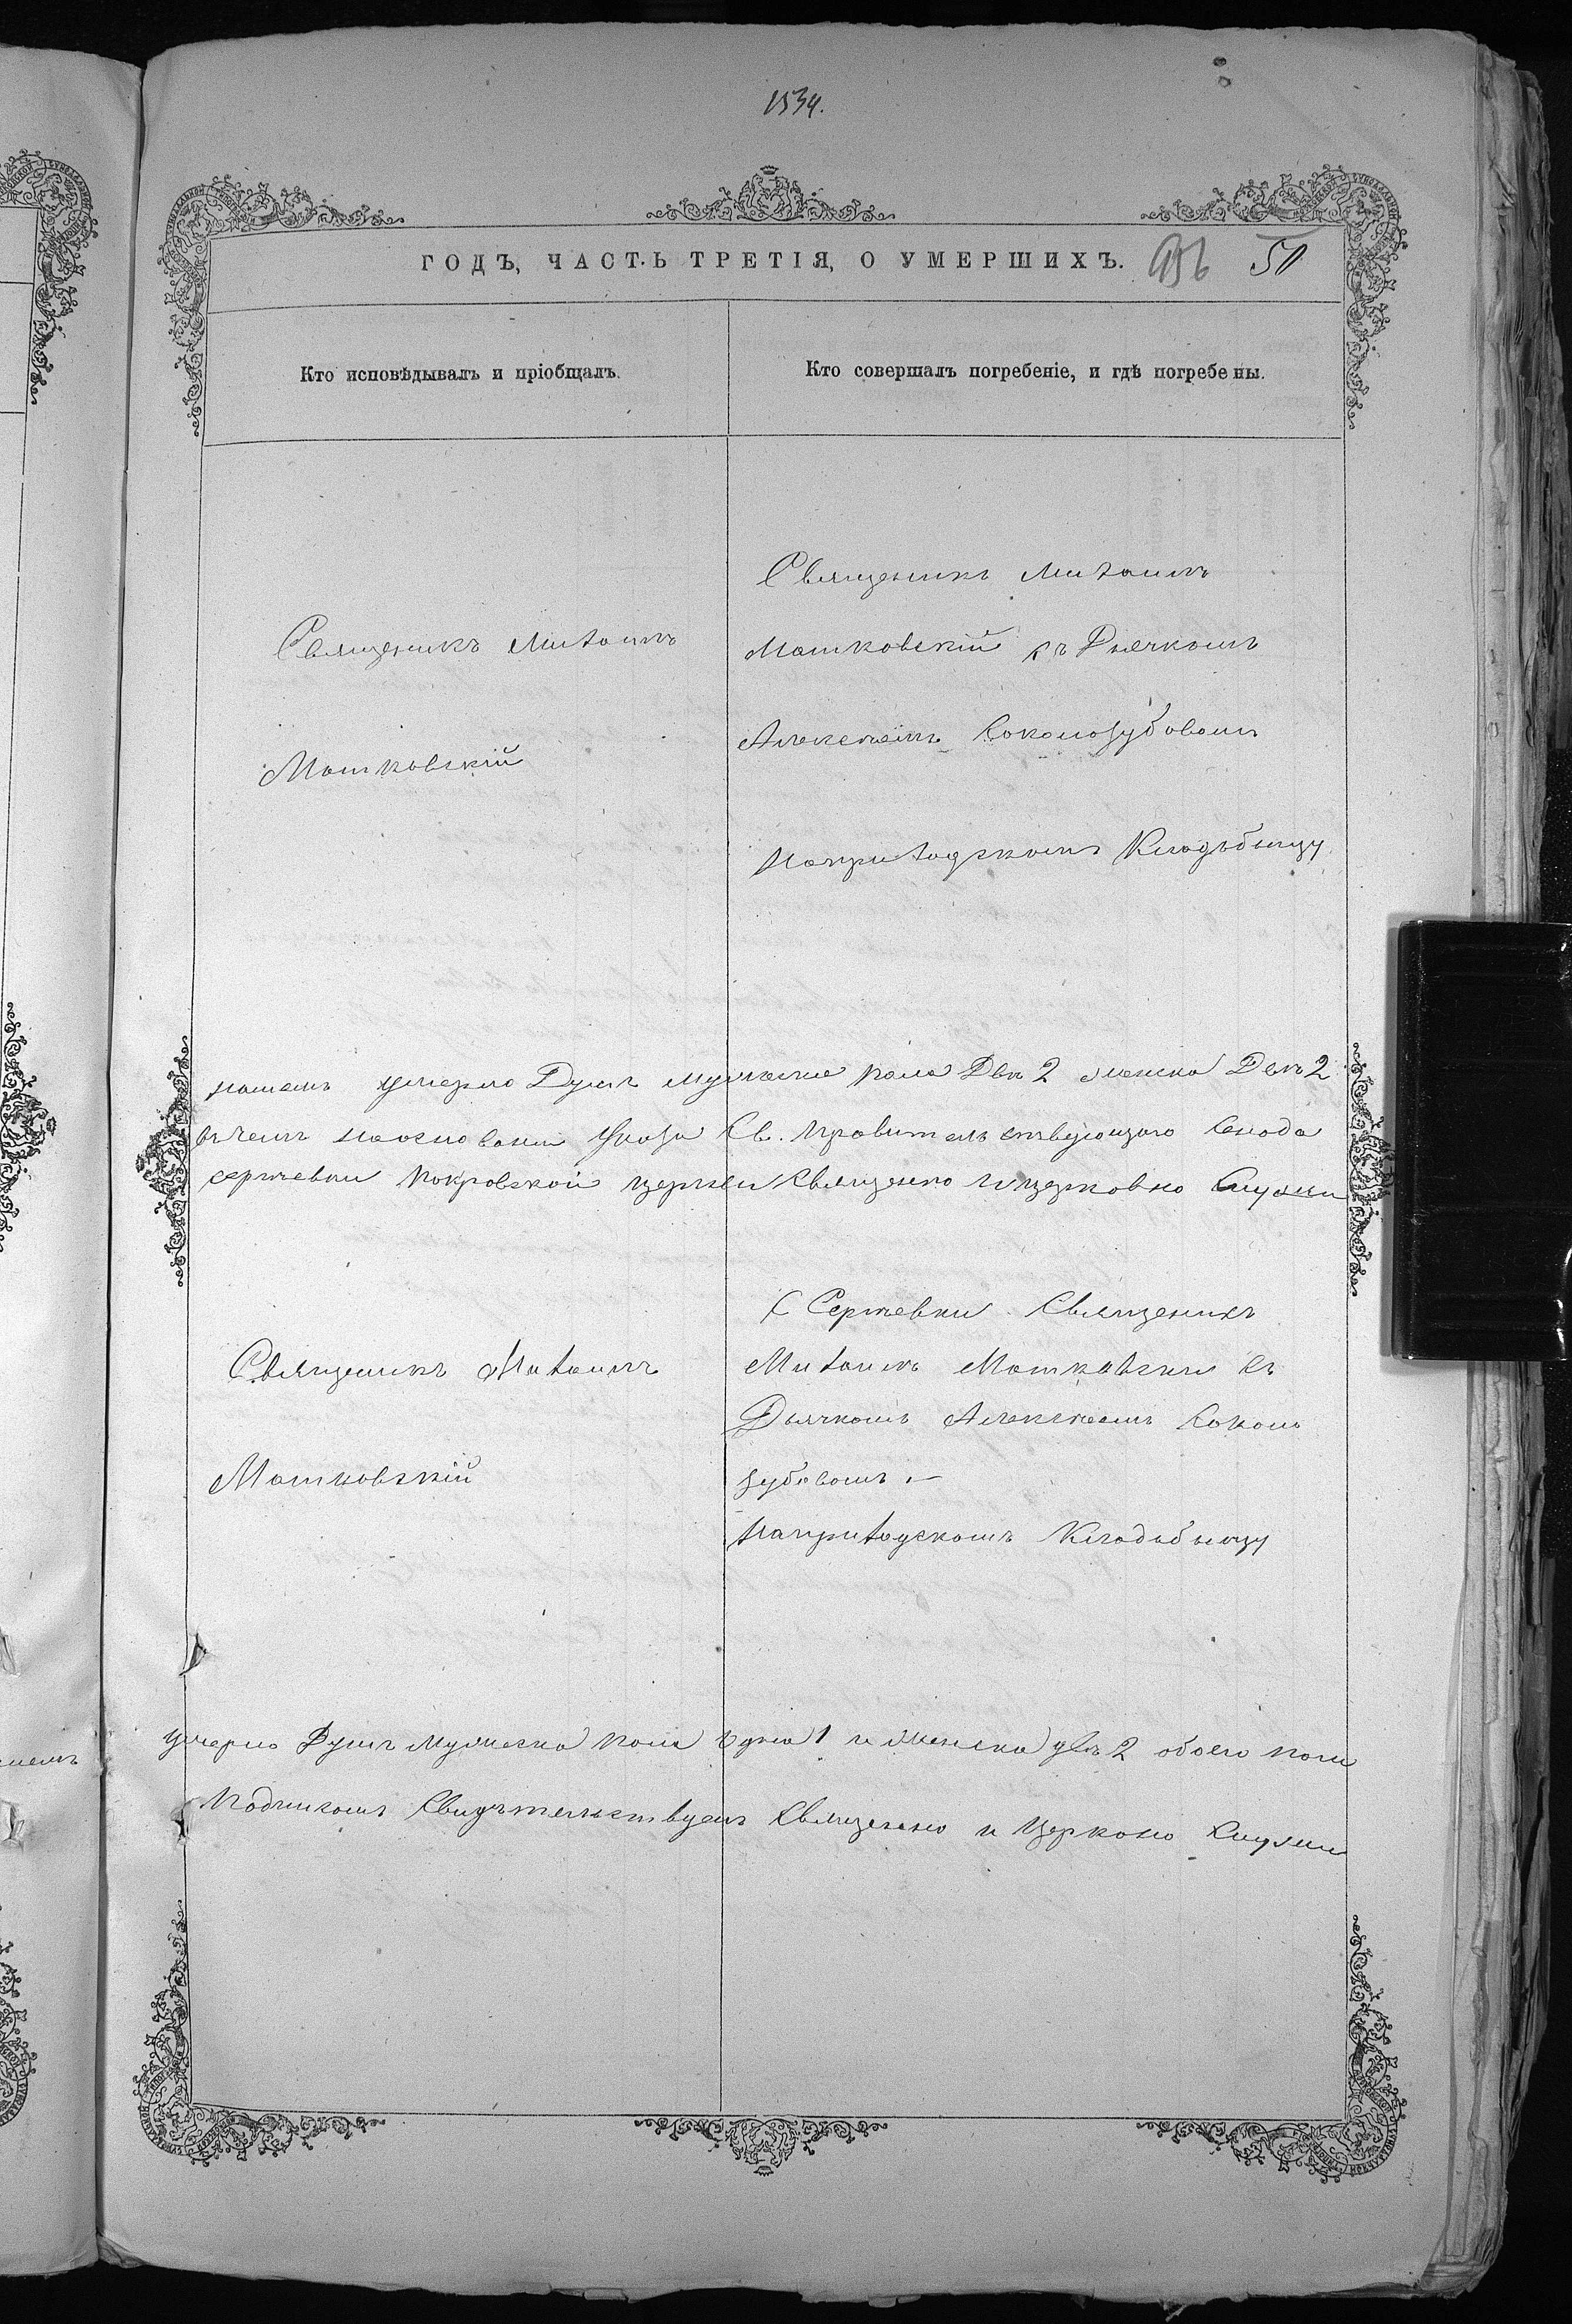 1534.
ГОДЪ, ЧАСТЬ ТРЕТІЯ, О УМЕРШИХЪ. 50
Кто исповѣдывалъ и пріобщалъ.
Кто совершалъ погребеніе, и гдѣ погребены.
Священикъ Михаилъ
Машковскій
Священикъ Михаилъ
Машковскій съ Дьячкомъ
Алексѣемъ Соколозубовымъ
Наприходскомъ Кладьбищу
умерло Душъ мужеска пола Двѣ 2 женска Двѣ 2
вчемъ наосновани Указа Св. Правительствующаго Сенода
сергѣевки Покровской церкви Священо и церковно Служи
Священикъ Михаилъ
Машковскій
С Сергѣевки Священикъ
Михаилъ Машковскій съ
Дьячкомъ Алексѣемъ Соколо
зубовымъ
Наприходскомъ Кладьбищу
умерло Душъ Мужеска пола одна 1 и Женска двѣ 2 обоего пола
Подписомъ Свидѣтельствуемъ Священо и Церконо Служи